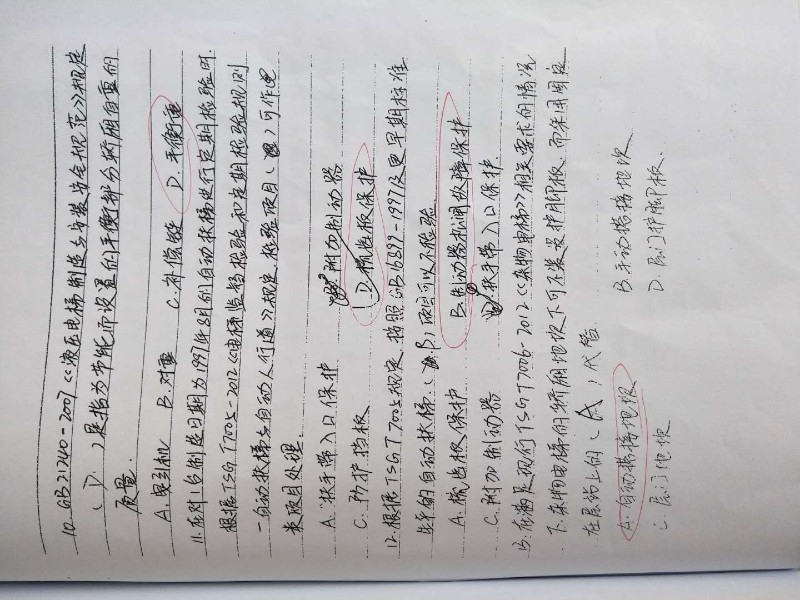 10. GB21240-2007《液压电梯制造与安装安全规范》规定
(D.)是指为节能而设置的平衡部分轿厢自重的
质量.
A. 曳引机 B. 对重 C. 补偿链 D. 平衡重
11. 在对1台制造日期为1997年8月的自动扶梯进行定期检验时.
根据TSG T7005-2012《电梯监督检验和定期检验规则
—自动扶梯与自动人行道》规定, 检验项目( )可作无
此项目处理.
A. 扶手带入口保护 附加制动器
C. 防护挡板 D. 梳齿板保护
12. 根据TSG T7005规定, 按照GB16899-1997及更早期标准
生产的自动扶梯, (B)项目可以不检验
A. 梳齿板保护 B. 制动器松闸故障保护
C. 附加制动器 扶手带入口保护
13. 在满足现行TSG T7006-2012《杂物电梯》相关要求的情况
下. 杂物电梯的轿厢地坎下可不装设护脚板, 而采用固定
在层站上的(A)代替
A. 自动搭接地板 B. 手动搭接地坎
C. 层门地坎 D. 层门护脚板.